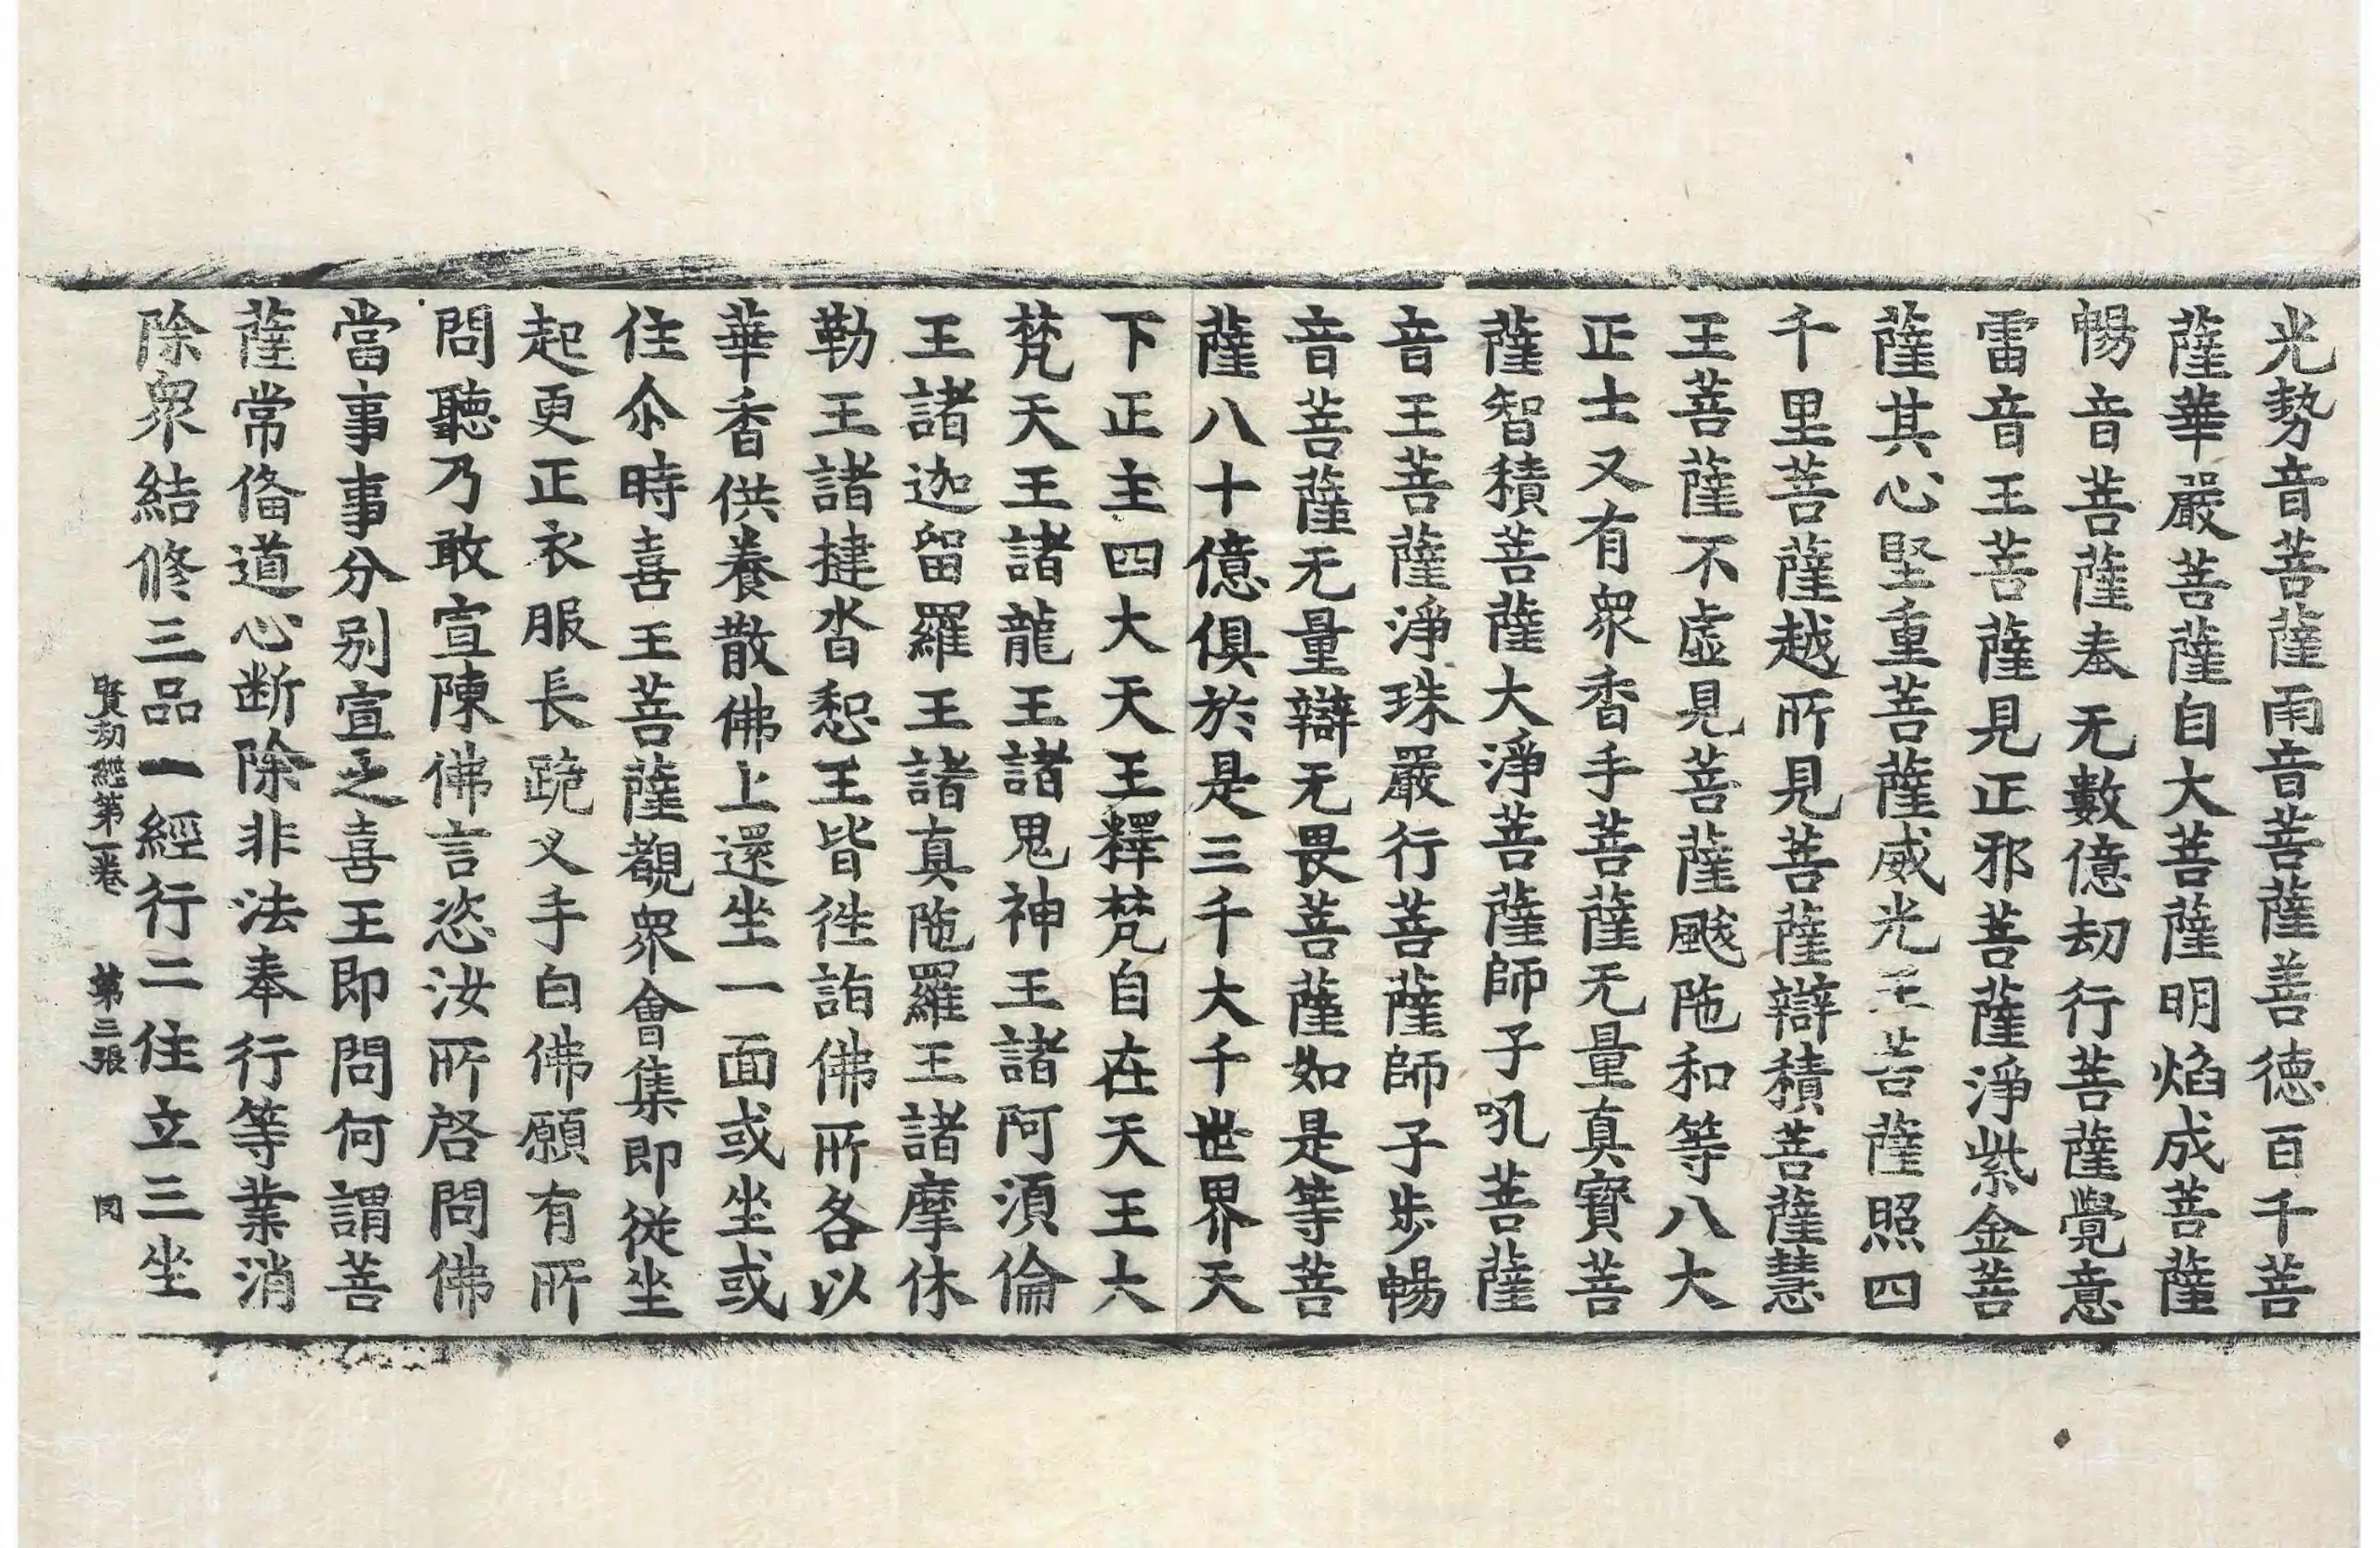 光勢音菩薩雨音菩薩善德百千菩
薩華嚴菩薩自大菩薩明焰成菩薩
暢音菩薩奉无數億劫行菩薩覺意
雷音王菩薩見正邪菩薩淨紫金菩
薩其心堅重菩薩威光王菩薩照四
千里菩薩越所見菩薩辯積菩薩慧
王菩薩不虛見菩薩颰陁和等八大
正士又有衆香手菩薩无量真寶菩
薩智積菩薩大淨菩薩師子吼菩薩
音王菩薩淨珠嚴行菩薩師子步暢
音菩薩无量辯无畏菩薩如是等菩
薩八十億俱於是三千大千世界天
下正主四大天王釋梵自在天王大
梵天王諸龍王諸鬼神王諸阿須倫
王諸迦留羅王諸真陁羅王諸摩休
勒王諸揵沓惒王皆徃詣佛所各以
華香供養散佛上還坐一面或坐或
住尒時喜王菩薩觀衆會集即從坐
起更正衣服長跪叉手白佛願有所
問聽乃敢宣陳佛言恣汝所啓問佛
當事事分别宣之喜王即問何謂菩
薩常俻道心断除非法奉行等業消
除衆結修三品一經行二住立三坐
賢劫經第一卷　第三張　罔